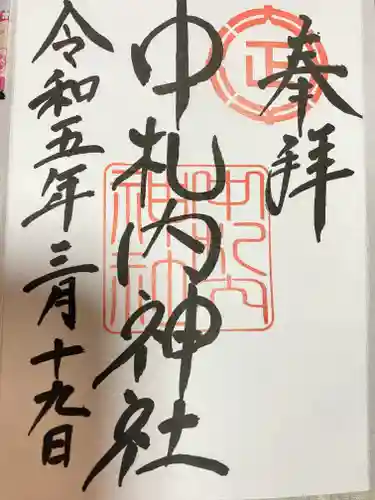 奉拝
中札内神社
令和五年三月十九日
大正
中札内
神社